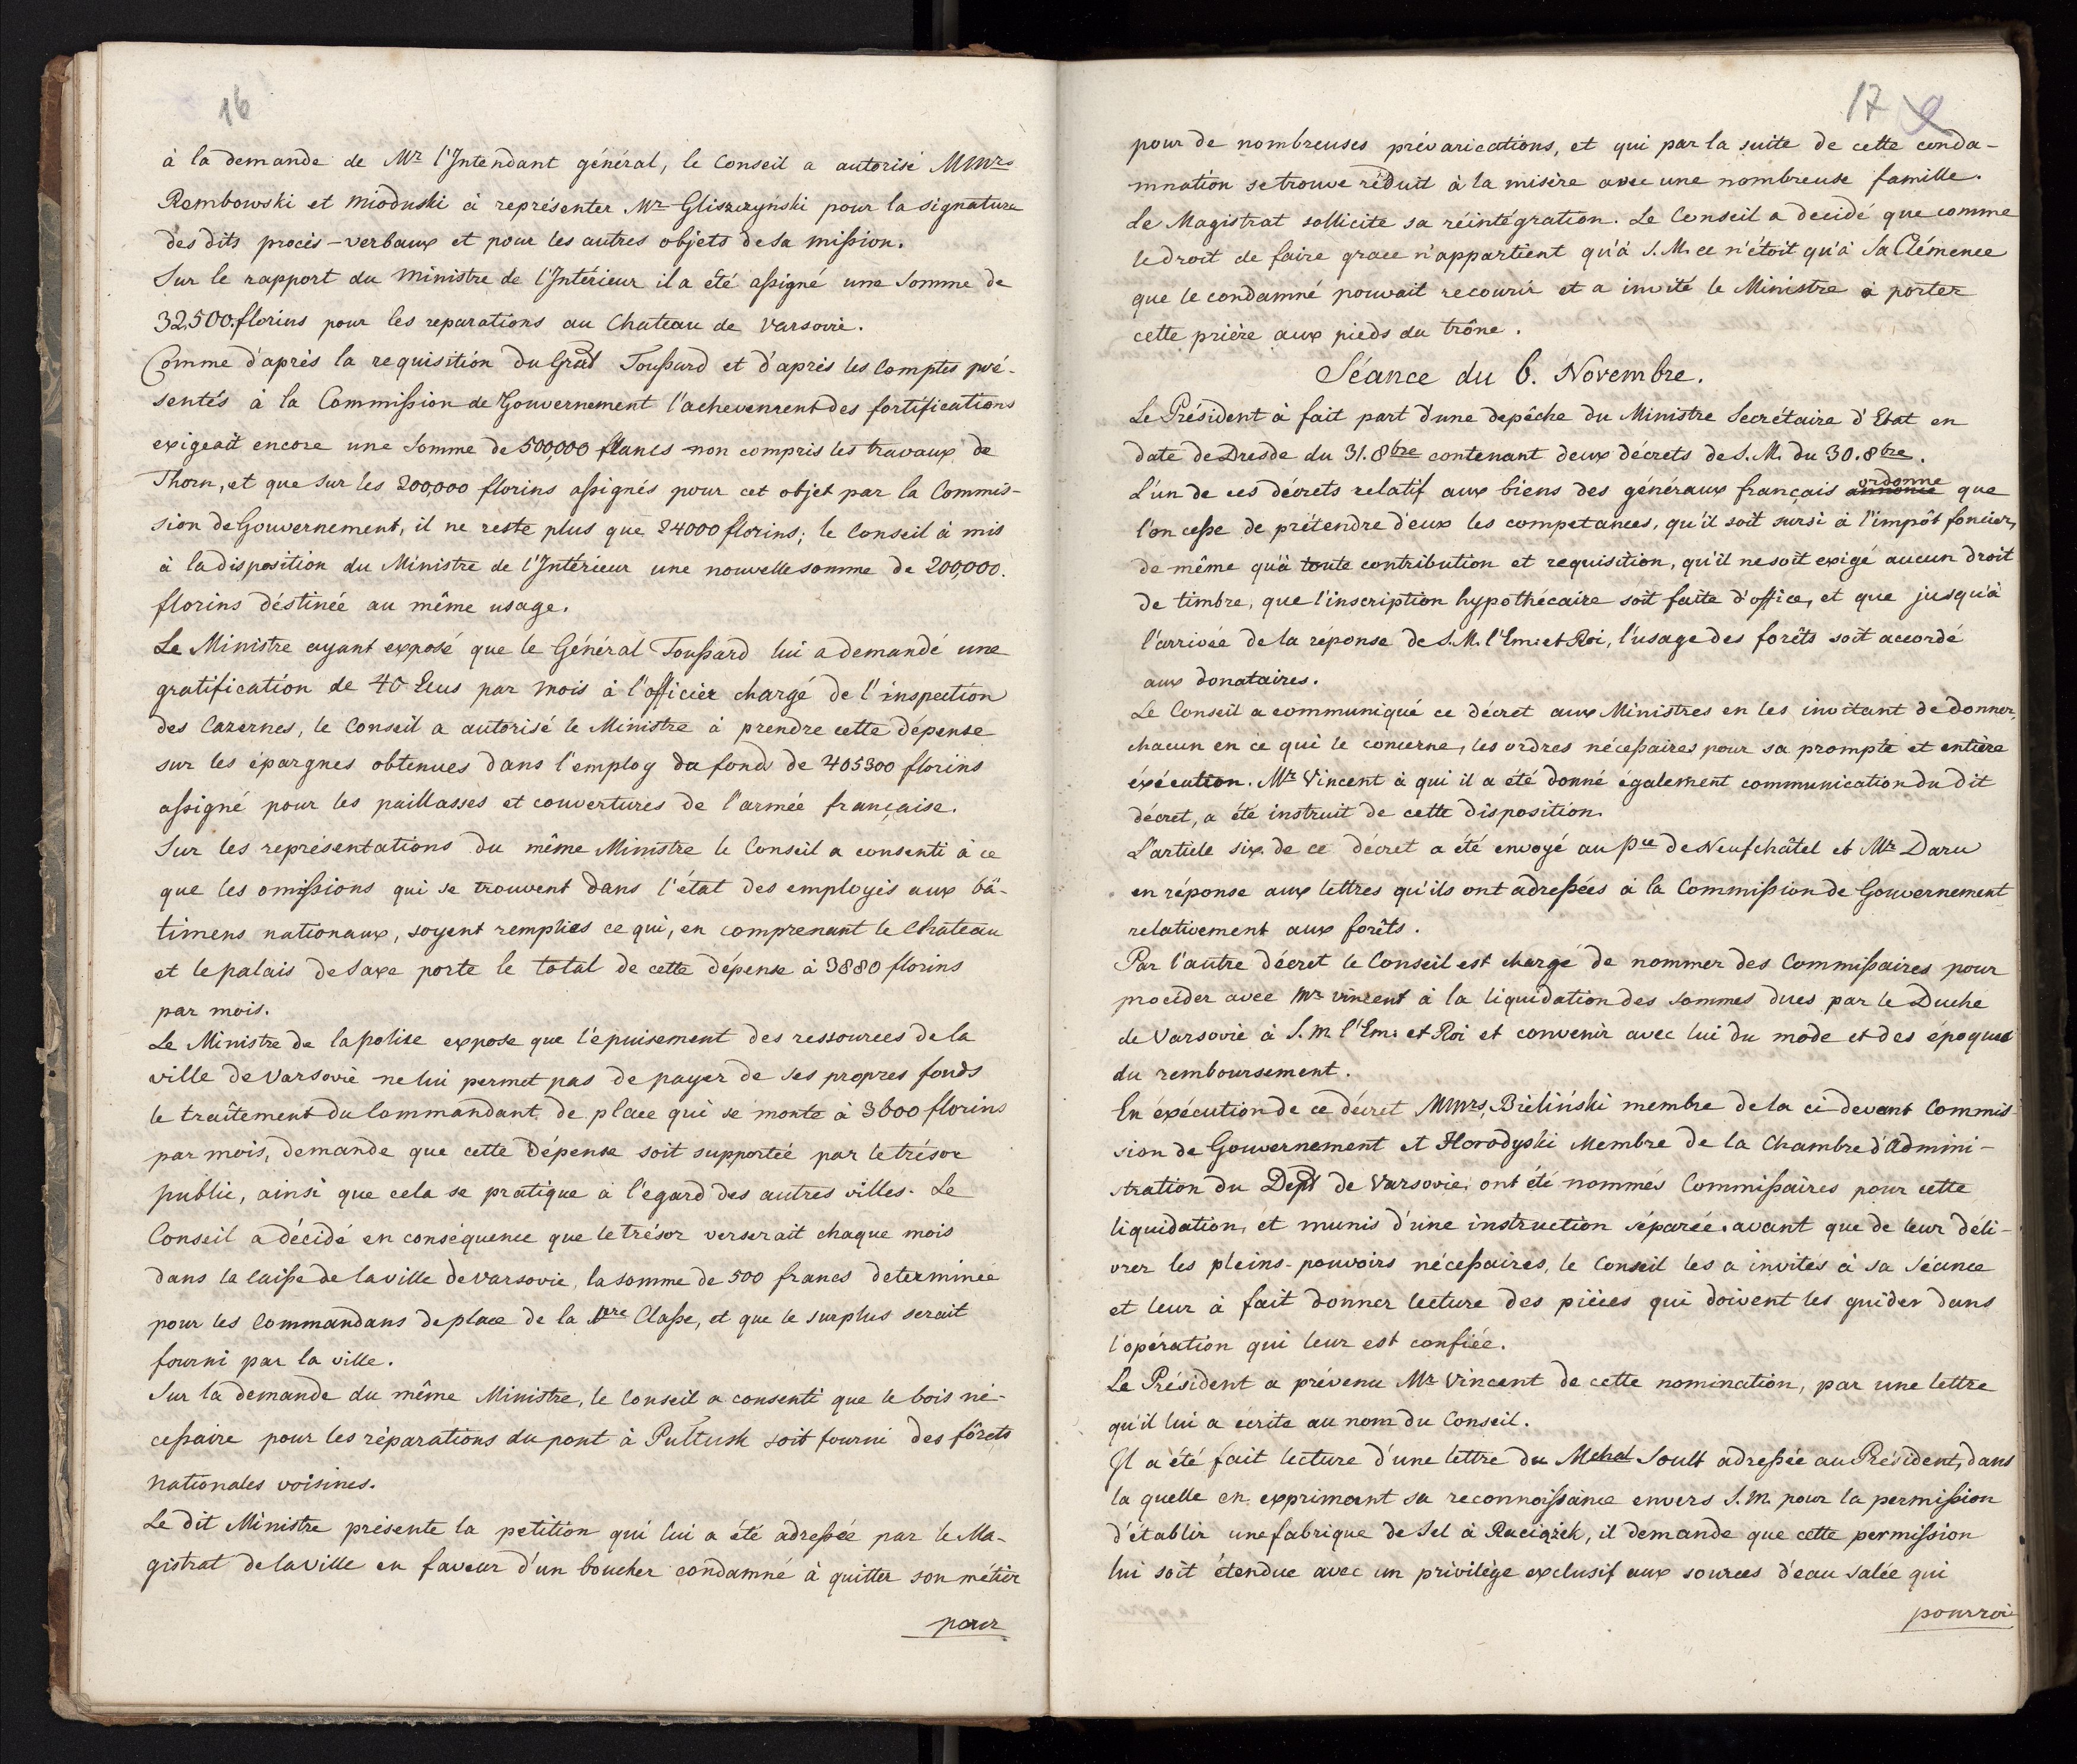 16
à la demande de Mr l'Intendant général, le Conseil a autorisé MMrs
Rembowski et Mioduski à représenter Mr Gliszczyński pour la signature
des dits procès-verbaux et pour les autres objets de sa mission.
Sur le rapport du Ministre de l'Intérieur il a été assigné une Somme de
32,500. florins pour les reparations au Chateau de Varsovie.
Comme d'après la requisition du Gral Toussard et d'après les Comptes pré-
sentés à la Commission de Gouvernement l'achevement des fortifications
exigeait encore une Somme de 500,000 francs non compris les travaux de
Thorn, et que sur les 200,000 florins assignés pour cet objet par la Commis-
sion de Gouvernement, il ne reste plus que 24000 florins; le Conseil à mis
à la disposition du Ministre de l'Intérieur une nouvelle somme de 200,000.
florins déstinée au même usage.
Le Ministre ayant exposé que le Général Toussard lui a demandé une
gratification de 40 Ecus par mois à l'officier chargé de l'inspection
des Cazernes, le Conseil a autorisé le Ministre à prendre cette dépense
sur les épargnes obtenues dans l'employ du fonds de 405300 florins
assigné pour les paillasses et couvertures de l'armée française.
Sur les représentations du même Ministre le Conseil a consenti à ce
que les omissions qui se trouvent dans l'état des employés aux bâ-
timens nationaux, soyent remplies ce qui, en comprenant le Chateau
et le palais de Saxe porte le total de cette dépense à 3880 florins
par mois.
Le Ministre de la police expose que l'epuisement des ressources de la
ville de Varsovie ne lui permet pas de payer de ses propres fonds
le traîtement du Commandant de place qui se monte à 3600 florins
par mois, demande que cette dépense soit supportée par le trésor
public, ainsi que cela se pratique à l'egard des autres villes. Le
Conseil a décidé en conséquence que le trésor verserait chaque mois
dans la caisse de la ville de Varsovie, la somme de 500 francs determinée
pour les Commandans de place de la 1ere Classe, et que le surplus serait
fourni par la ville.
Sur la demande du même Ministre, le Conseil a consenti que le bois né-
cessaire pour les réparations du pont à Pultusk soit fourni des fôrets
nationales voisines.
Le dit Ministre présente la petition qui lui a été adressée par le Ma-
gistrat de la Ville en faveur d'un boucher condamné à quitter son métier
pour
17
pour de nombreuses prévarications, et qui par la suite de cette conda-
mnation se trouve réduit à la misère avec une nombreuse famille.
Le Magistrat sollicite sa réintégration. Le Conseil a decidé que comme
le droit de faire grace n'appartient qu'à S.M. ce n'étoit qu'à Sa Clémence
que le condamné pouvait recourir et a invité le Ministre à porter
cette prière aux pieds du trône.
Séance du 6. Novembre.
Le Président à fait part d'une depêche du Ministre Secrétaire d'Etat en
date de Dresde du 31. 8bre contenant deux décrets de S.M. du 30. 8bre.
L'un de ces décrets relatif aux biens des généraux français annonce ordonne que
l'on cesse de prétendre d'eux les competances, qu'il soit sursi à l'impôt foncier,
de même qu'à toute contribution et requisition, qu'il ne soit exigé aucun droit
de timbre, que l'inscription hypothécaire soit faite d'office, et que jusqu'à
l'arrivée de la réponse de S.M. l'Em: et Roi, l'usage des forêts soit accordé
aux donataires.
Le Conseil a communiqué ce décret aux Ministres en les invitant de donner,
chacun en ce qui le concerne, les ordres nécessaires pour sa prompte et entière
éxécution. Mr Vincent à qui il a été donné également communication du dit
décret, a été instruit de cette disposition.
L'article six de ce décret a été envoyé au Pce de Neufchâtel et Mr Daru
en réponse aux lettres qu'ils ont adressées à la Commission de Gouvernement
relativement aux forêts.
Par l'autre décret le Conseil est chargé de nommer des Commissaires pour
procéder avec Mr Vincent à la liquidation des sommes dues par le Duché
de Varsovie à S.M. l'Em: et Roi et convenir avec lui du mode et des époques
du remboursement.
En éxécution de ce décret MMrs, Bieliński membre de la ci devant Commis-
sion de Gouvernement et Horodyski Membre de la Chambre d'Admini-
stration du Dept de Varsovie, ont été nommés Commissaires pour cette
liquidation, et munis d'une instruction séparée. avant que de leur déli-
vrer les pleins-pouvoirs nécessaires, le Conseil les a invités à sa Séance
et leur à fait donner lecture des pièces qui doivent les guider dans
l'opération qui leur est confiée.
Le Président a prévenu Mr Vincent de cette nomination, par une lettre
qu'il lui a écrite au nom du Conseil.
Il a été fait lecture d'une lettre du Mchal Soult adressée au Président, dans
la quelle en exprimant sa reconnoissance envers S.M. pour la permission
d'établir une fabrique de Sel à Raciążek, il demande que cette permission
lui soit étendue avec un privilège exclusif aux sources d'eau salée qui
pourroi